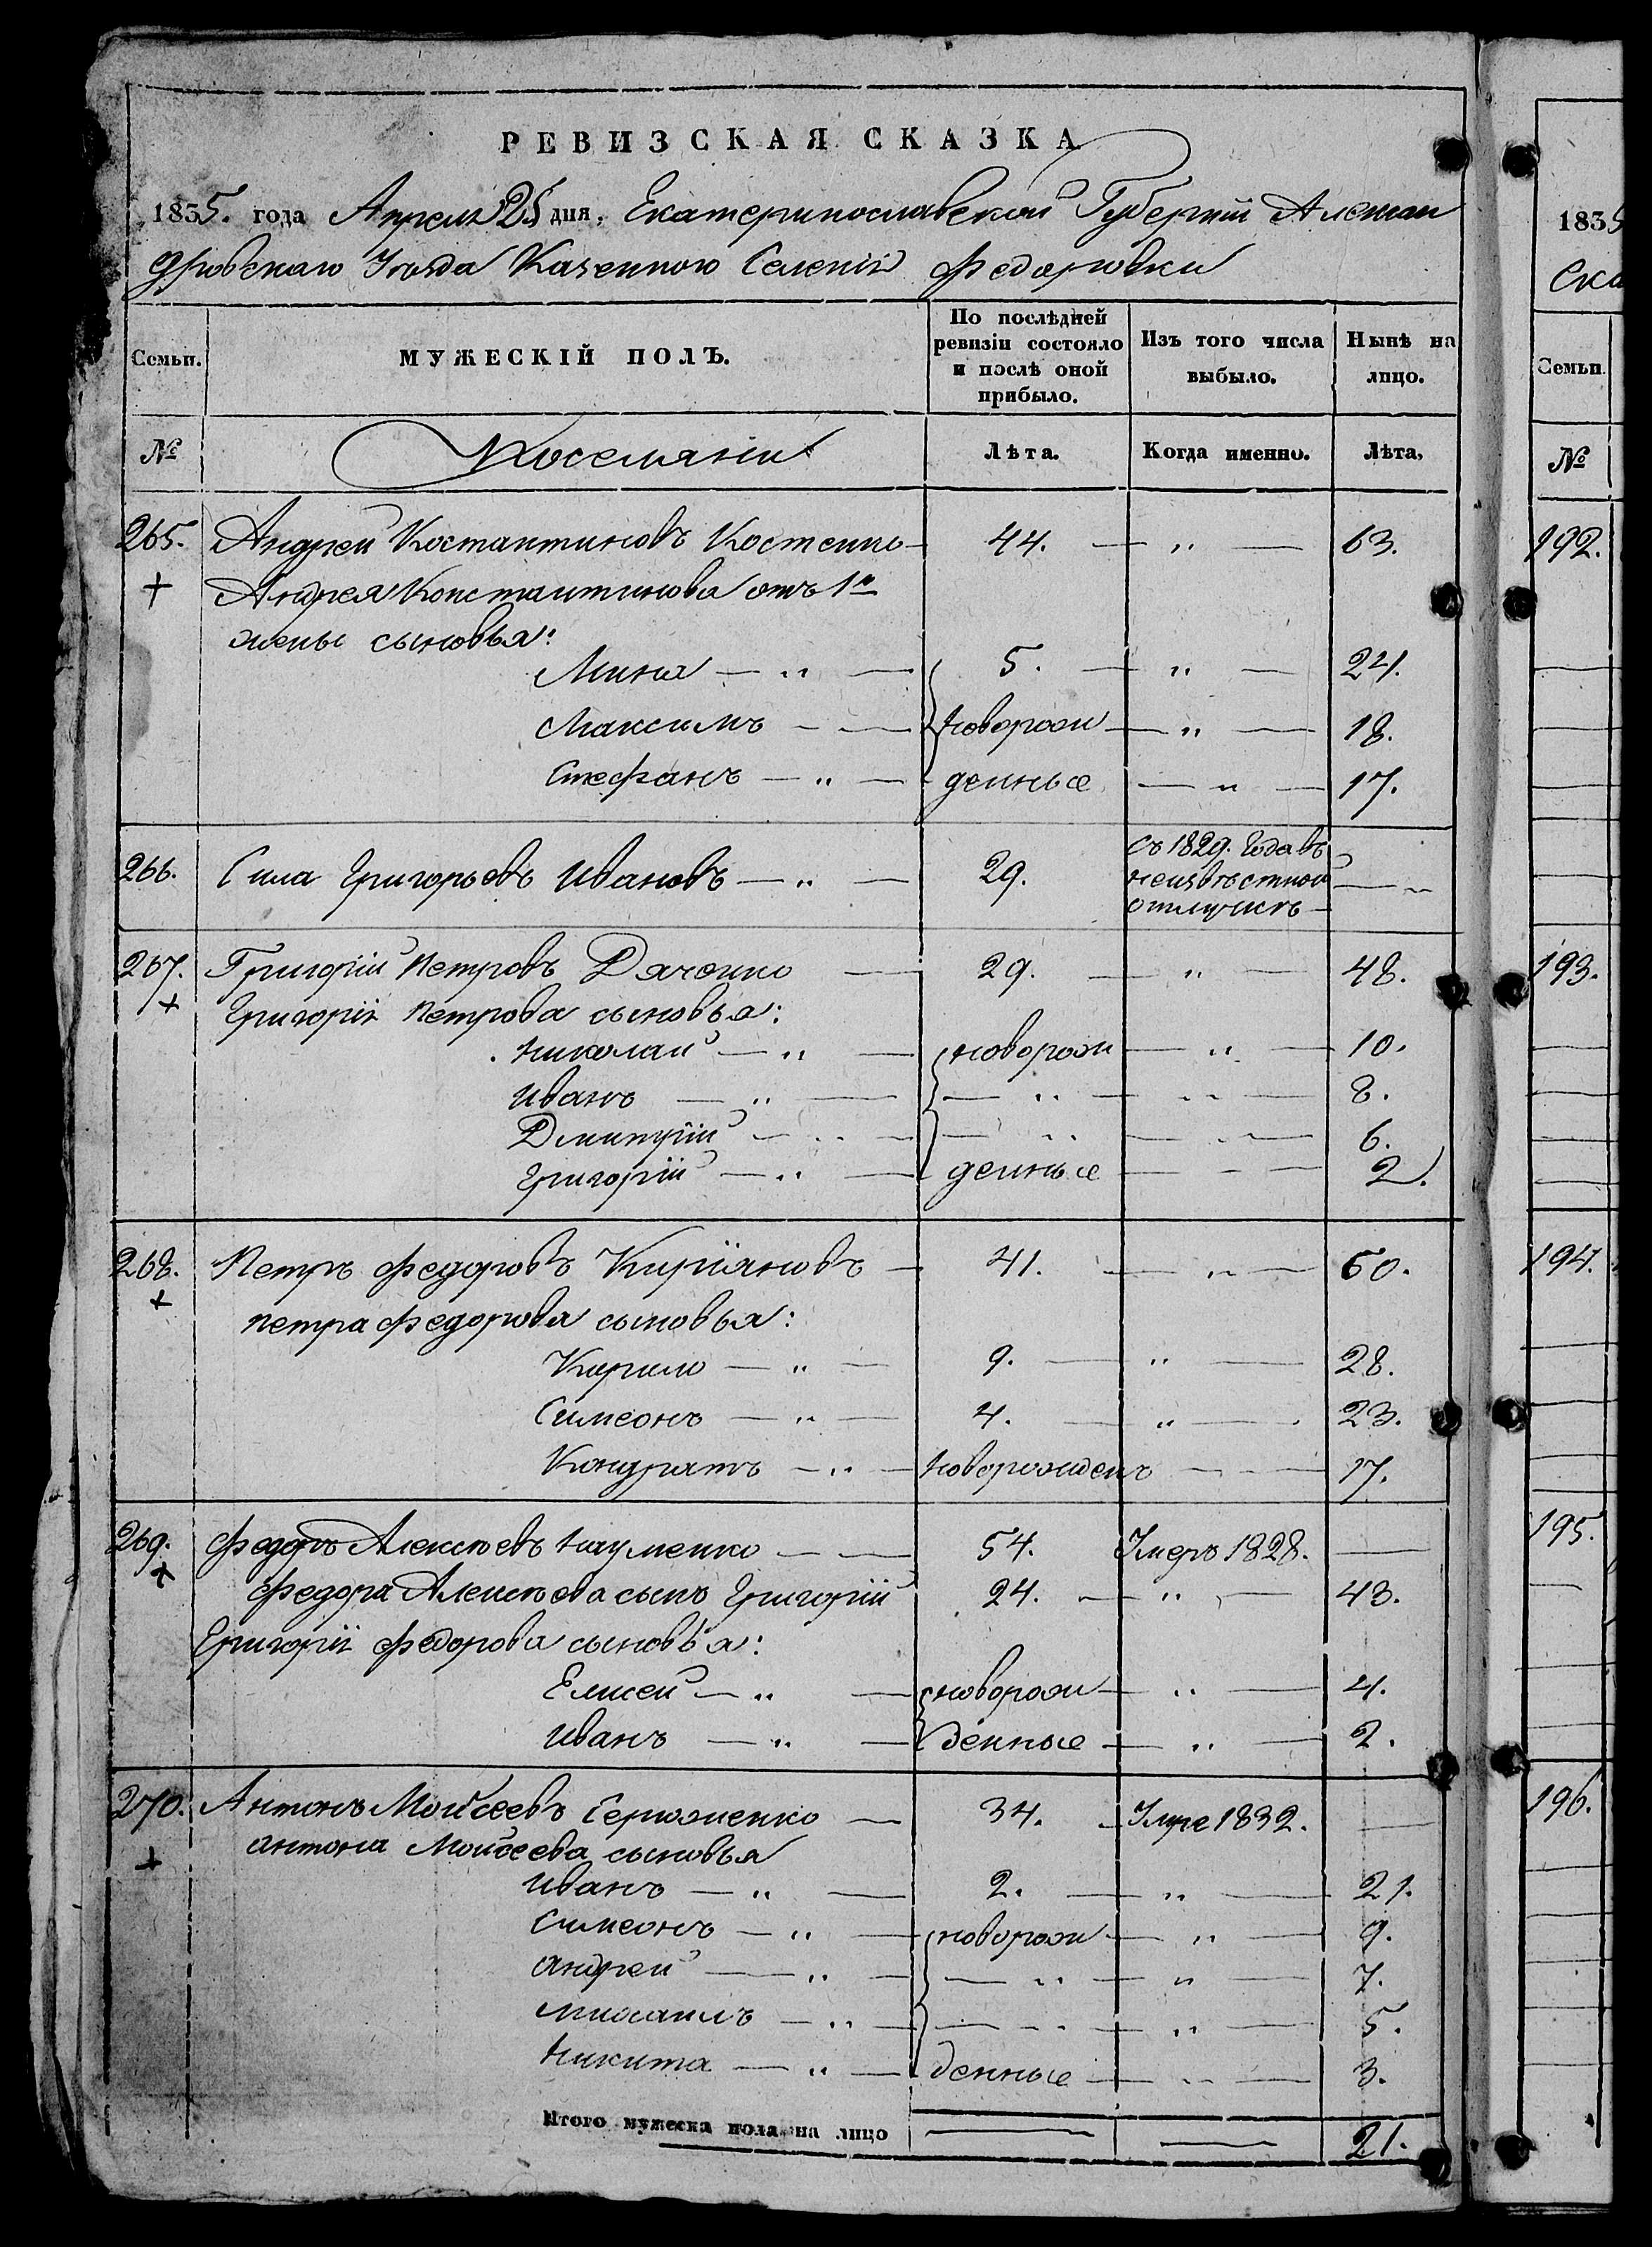 РЕВИЗСКАЯ СКАЗКА
1835. года Апреля 25 дня, Екатеринославской Губерніи Алексан
дровскаго Уезда Казенного Селенія Федоровки
Семьи. МУЖЕСКІЙ ПОЛЪ. По послѣдней ревизіи состояло и послѣ оной прибыло. Изъ того числа выбыло. Нынѣ на лицо.
№ Поселяніи Лѣта. Когда именно. Лѣта.
265. Андреи Костантиновъ Костенко — 44. — „ — 63.
+ Андрея Констаитинова отъ 1й
жены сыновья:
Мина — „ — 5. — „ — 24.
Максимъ — — новорож — „ — 18.
Стефанъ — „ — денные — „ — 17.
266. Сила Григорьевъ Ивановъ — „ — 29. съ 1829. года въ неизвѣстной отлучкѣ — — „
267. Григорій Петровъ Дяченко — 29. — „ — 48.
+ Григорія Петрова сыновья:
Николай — „ — новорож — „ — 10.
Иванъ — „ — — „ — „ — 8.
Дмитрій — „ — — „ — „ — 6.
Григорій — „ — денные — „ — 2.
268. Петръ Федоровъ Кирїяновъ — 41. — „ — 60.
+ петра Федорова сыновья:
Кирило — „ — 9. — „ — 28.
Симеонъ — „ — 4. — „ — 23.
Кондратъ — „ — новорожденъ — „ — 17.
269. Федоръ Алексѣевъ Науменко — — 54. Умеръ 1828. —
+ Федора Алексѣева сынъ Григорій 24. — „ — 43.
Григорія Федорова сыновья:
Елисей — „ — новорож — „ — 4.
Иванъ — „ — денные — „ — 2.
270. Антонъ Мойсеевъ Сероженко — 34. — Умре 1832. —
+ антона Мойсеева сыновья
Иванъ — „ — 2. — „ — 21.
Симеонъ — „ — новорож — „ — 9.
андреи — „ — — „ — „ — 7.
михаилъ — „ — — „ — „ — 5.
Никита — „ — денные — „ — 3.
Итого мужеска пола на лицо — — 21.
1835
Ска
Семьи
№
192.
193.
194.
195.
196.